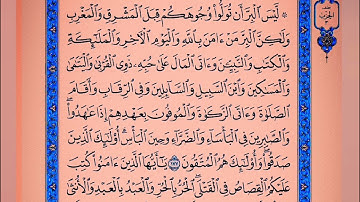 ۞ لَّيْسَ ٱلْبِرَّ أَن تُوَلُّوا۟ وُجُوهَكُمْ قِبَلَ ٱلْمَشْرِقِ وَٱلْمَغْرِبِ
وَلَٰكِنَّ ٱلْبِرَّ مَنْ ءَامَنَ بِٱللَّهِ وَٱلْيَوْمِ ٱلْـَٔاخِرِ وَٱلْمَلَٰٓئِكَةِ
وَٱلْكِتَٰبِ وَٱلنَّبِيِّـۧنَ وَءَاتَى ٱلْمَالَ عَلَىٰ حُبِّهِۦ ذَوِى ٱلْقُرْبَىٰ وَٱلْيَتَٰمَىٰ
وَٱلْمَسَٰكِينَ وَٱبْنَ ٱلسَّبِيلِ وَٱلسَّآئِلِينَ وَفِى ٱلرِّقَابِ وَأَقَامَ
ٱلصَّلَوٰةَ وَءَاتَى ٱلزَّكَوٰةَ وَٱلْمُوفُونَ بِعَهْدِهِمْ إِذَا عَٰهَدُوا۟ۖ
وَٱلصَّٰبِرِينَ فِى ٱلْبَأْسَآءِ وَٱلضَّرَّآءِ وَحِينَ ٱلْبَأْسِۗ أُو۟لَٰٓئِكَ ٱلَّذِينَ
صَدَقُوا۟ۖ وَأُو۟لَٰٓئِكَ هُمُ ٱلْمُتَّقُونَ ١٧٧ يَٰٓأَيُّهَا ٱلَّذِينَ ءَامَنُوا۟ كُتِبَ
عَلَيْكُمُ ٱلْقِصَاصُ فِى ٱلْقَتْلَىۖ ٱلْحُرُّ بِٱلْحُرِّ وَٱلْعَبْدُ بِٱلْعَبْدِ وَٱلْأُنثَىٰ